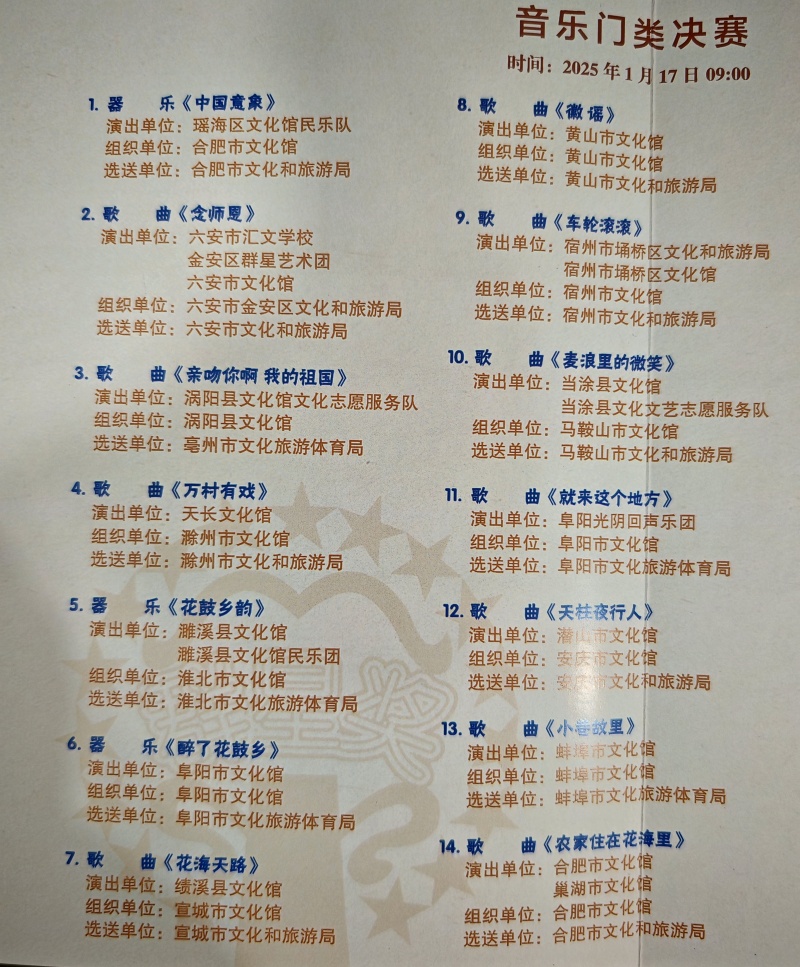 音乐门类决赛
时间：2025年1月17日 09:00
1. 器 乐《中国意象》
演出单位：瑶海区文化馆民乐队
组织单位：合肥市文化馆
选送单位：合肥市文化和旅游局
2. 歌 曲《念师恩》
演出单位：六安市汇文学校
金安区群星艺术团
六安市文化馆
组织单位：六安市金安区文化和旅游局
选送单位：六安市文化和旅游局
3. 歌 曲《亲吻你啊 我的祖国》
演出单位：涡阳县文化馆文化志愿服务队
组织单位：涡阳县文化馆
选送单位：亳州市文化旅游体育局
4. 歌 曲《万村有戏》
演出单位：天长文化馆
组织单位：滁州市文化馆
选送单位：滁州市文化和旅游局
5. 器 乐《花鼓乡韵》
演出单位：濉溪县文化馆
濉溪县文化馆民乐团
组织单位：淮北市文化馆
选送单位：淮北市文化旅游体育局
6. 器 乐《醉了花鼓乡》
演出单位：阜阳市文化馆
组织单位：阜阳市文化馆
选送单位：阜阳市文化旅游体育局
7. 歌 曲《花海天路》
演出单位：绩溪县文化馆
组织单位：宣城市文化馆
选送单位：宣城市文化和旅游局
8. 歌 曲《徽谣》
演出单位：黄山市文化馆
组织单位：黄山市文化馆
选送单位：黄山市文化和旅游局
9. 歌 曲《车轮滚滚》
演出单位：宿州市埇桥区文化和旅游局
宿州市埇桥区文化馆
组织单位：宿州市文化馆
选送单位：宿州市文化和旅游局
10. 歌 曲《麦浪里的微笑》
演出单位：当涂县文化馆
当涂县文化文艺志愿服务队
组织单位：马鞍山市文化馆
选送单位：马鞍山市文化和旅游局
11. 歌 曲《就来这个地方》
演出单位：阜阳光阴回声乐团
组织单位：阜阳市文化馆
选送单位：阜阳市文化旅游体育局
12. 歌 曲《天柱夜行人》
演出单位：潜山市文化馆
组织单位：安庆市文化馆
选送单位：安庆市文化和旅游局
13. 歌 曲《小巷故里》
演出单位：蚌埠市文化馆
组织单位：蚌埠市文化馆
选送单位：蚌埠市文化旅游体育局
14. 歌 曲《农家住在花海里》
演出单位：合肥市文化馆
巢湖市文化馆
组织单位：合肥市文化馆
选送单位：合肥市文化和旅游局